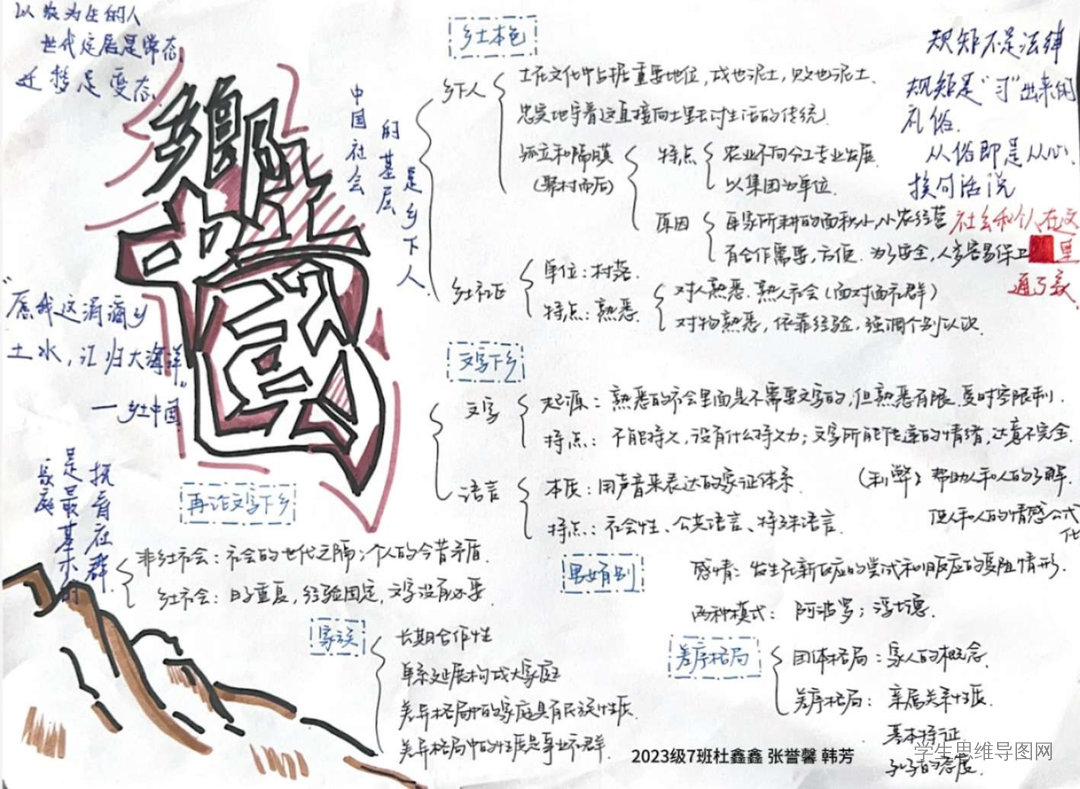 以农为生的人
世代定居是常态
迁移是变态
鄉土
中國
中国社会
的基层
是乡下人
"愿我这滴滴乡
土水，汇归大海洋"
——乡土中国
抚育在群
是最基本的
乡土本色
乡下人
土在文化中占据重要地位，成也泥土，败也泥土.
忠实地守着这直接向土里去讨生活的传统
孤立和隔膜
(聚村而居)
特点
农业不向分工专业发展.
以集团为单位.
原因
每家所耕的面积小，小农经营
有合作需要，方便. 为了安全，人多容易保卫
乡土社会
单位：村落.
特点：熟悉.
对人熟悉. 熟人社会（面对面社群）
对物熟悉，依靠经验，强调个别认识.
规矩不是法律
规矩是"习"出来的
礼俗.
从俗即是从心.
换句话说
社会和个人在这
里
通了家
文字下乡
文字
起源：熟悉的社会里面是不需要文字的，但熟悉有限，受时空限制.
特点：不能持久，没有什么持久力；文字所能传达的情绪，达意不完全.
语言
本质：用声音来表达的象征体系.
(利弊) 帮助人和人的了解.
使人和人的情感公式
化
特点：社会性、公共语言、特殊语言.
再论文字下乡
非乡土社会：社会的世代之隔；个人的今昔矛盾.
乡土社会：日子重复，经验固定，文字没有必要.
男女有别
感情：发生在新反应的尝试和旧反应的受阻情形.
两种模式：阿波罗；浮士德.
家族
长期合作性
单系延展构成大家庭
差异格局中的家庭具有氏族性质.
差异格局中的性质是事业社群.
差序格局
团体格局：家人的概念.
差序格局：亲属关系性质.
基本特征
孔子的态度.
2023级7班杜鑫鑫 张誉馨 韩芳
学生思维导图网